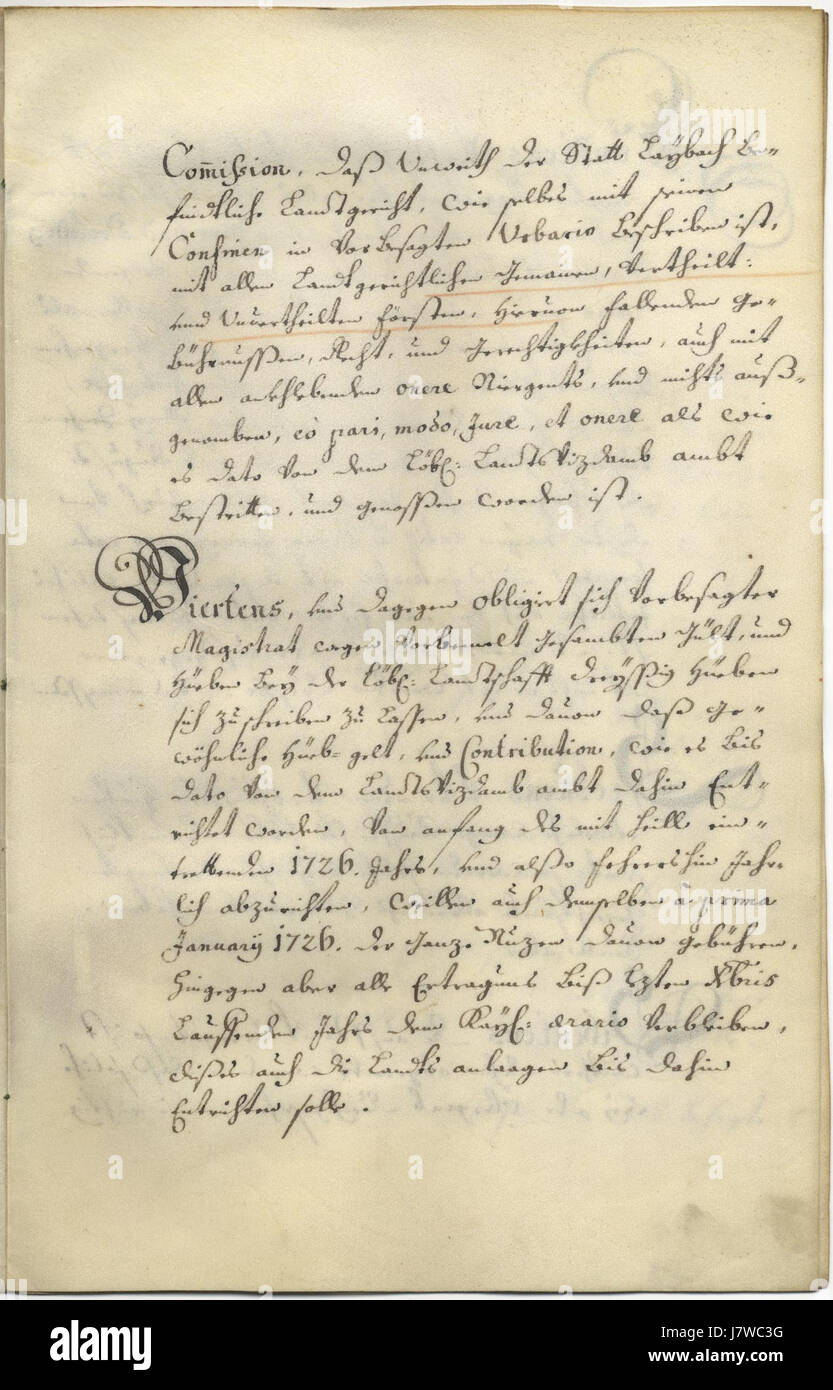 Com̄ission, daß Unweith der Statt Laÿbach be-
findtliche Landtgericht, wie selbes mit seinen
Confinen in Vorbesagten Urbario beschriben ist,
mit allen Landtgerichtlichen Vertheilt:
und Unvertheilten Försten, hieruon fallenden Ge-
Recht, und Gerechtigkheiten, auch mit
allen anklebenden onere Niergents, und nichts auß-
genomben, eo pari, modo, Jure, et onere als wie
es dato von dem Löbl: LandtsVizdomb ambt
bestritten, und genossen worden ist.
Viertens, und dagegen obligirt sich Vorbesagter
Magistrat wegen Gesambten Gült, und
Hueben beÿ der Löbl: Landtschafft dreÿssig Hueben
sich zuschreiben zu Lassen, und dauon daß Ge-
wöhnliche Hueb-gelt, und Contribution, wie es bis
dato von dem LandtsVizdomb ambt dahin Ent-
richtet worden, Von anfang des mit heill ein-
trettenden 1726. Jahrs, und alßo fehrershin Jähr-
lich abzurichten, Willen auch demselben à prima
Januarÿ 1726. der Ganze Nuzen dauon gebühren,
hingegen aber alle Ertragnus biß lezten Xbris
Lauffenden Jahrs dem Kaÿl: ærario Verbleiben,
dißes auch die Landts anlaagen bis dahin
Entrichten solle.
alamy
Image ID: J7WC3G
www.alamy.com